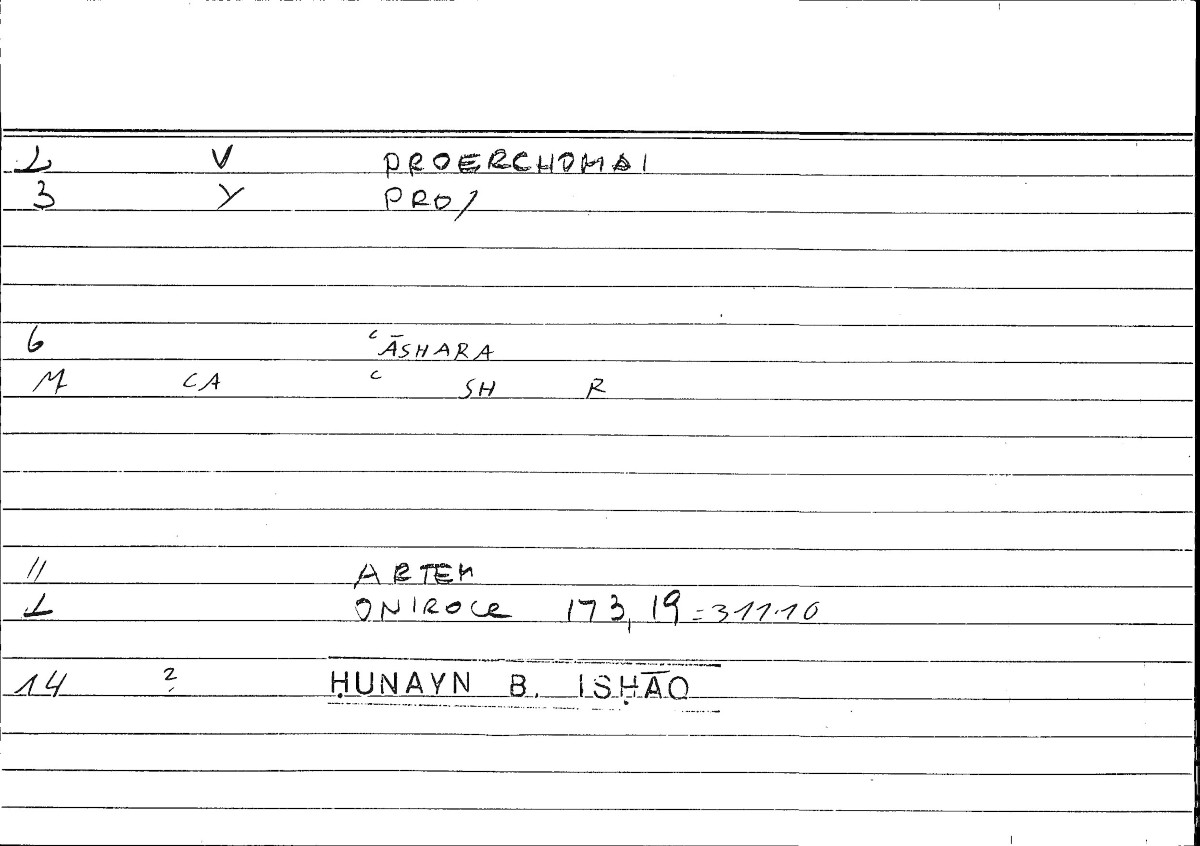 2 V PROERCHOMAI
3 Y PRO/
6 ʿĀSHARA
M CA ʿ SH R
11 ARTEM
1 ONIROCR 173,19 = 311.10
14 ? ḤUNAYN B. ISḤĀQ